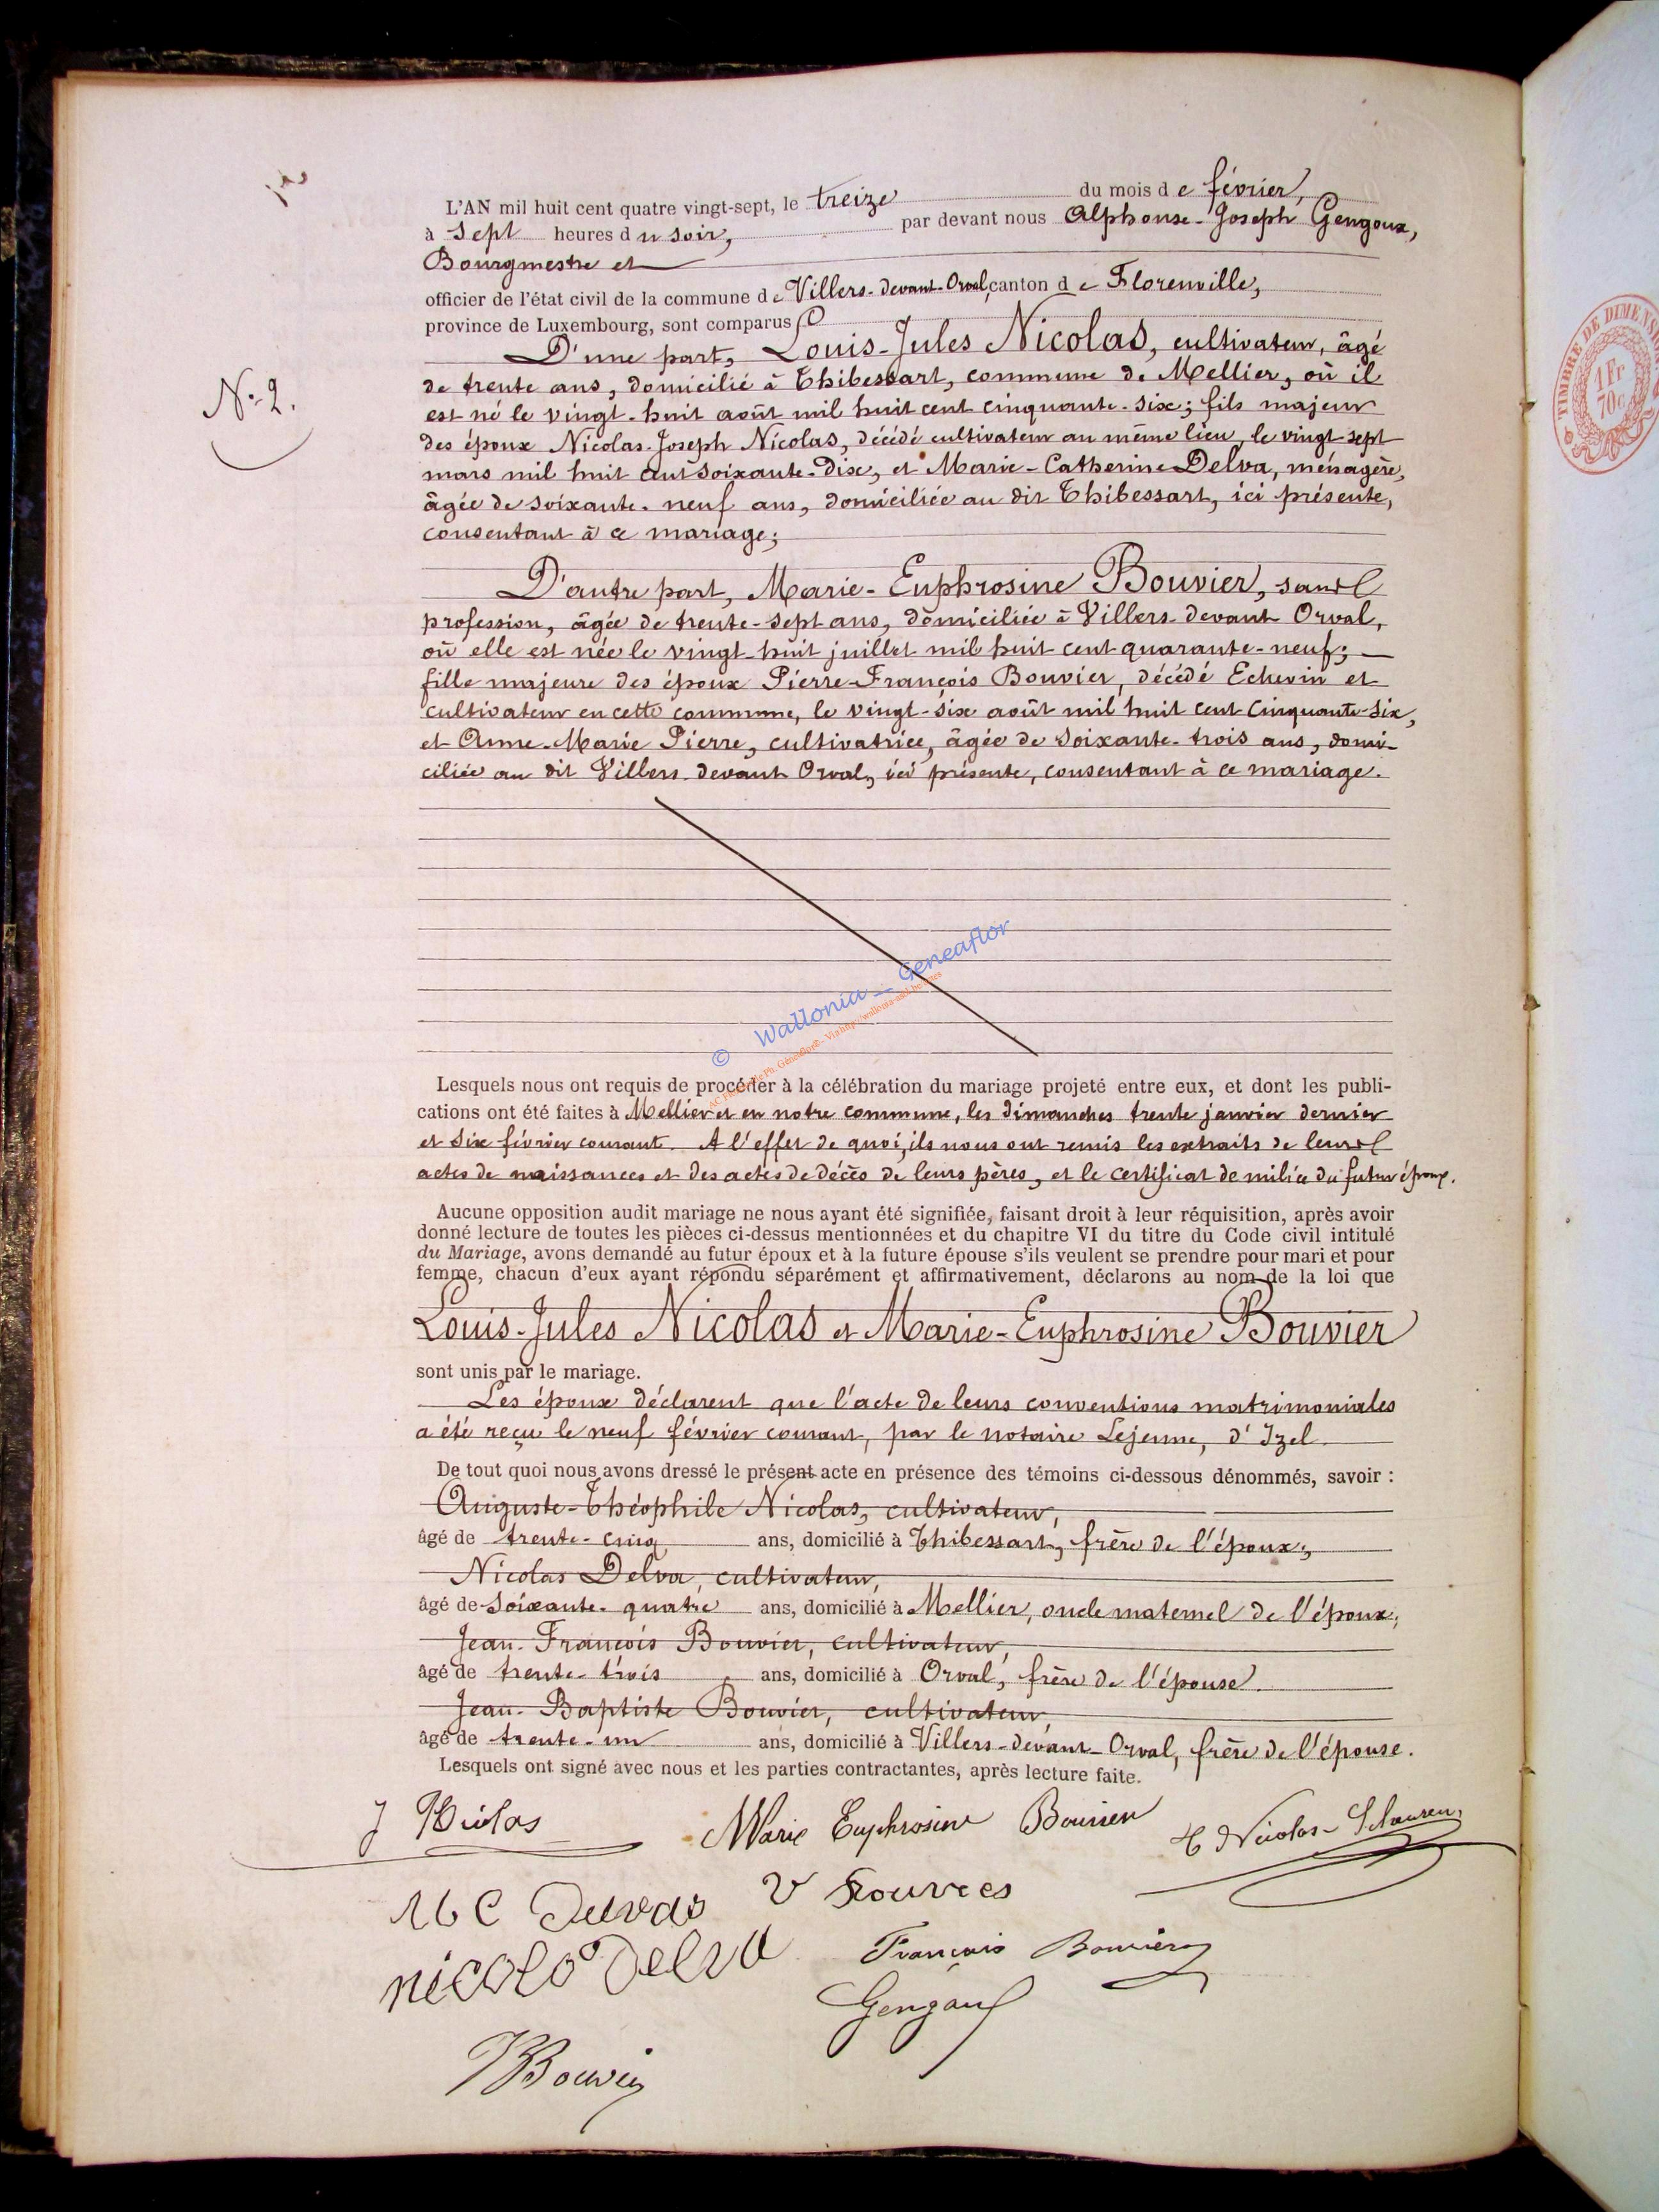 L'AN mil huit cent quatre vingt-sept, le treize du mois de février,
à sept heures du soir, par devant nous Alphonse-Joseph Gengoux,
Bourgmestre et
officier de l'état civil de la commune de Villers-devant-Orval, canton de Florenville,
province de Luxembourg, sont comparus
D'une part, Louis-Jules Nicolas, cultivateur, âgé
de trente ans, domicilié à Thibessart, commune de Mellier, où il
est né le vingt-huit août mil huit cent cinquante-six; fils majeur
des époux Nicolas-Joseph Nicolas, décédé cultivateur au même lieu, le vingt-sept
mars mil huit cent soixante-dix, et Marie-Catherine Delva, ménagère,
âgée de soixante-neuf ans, domiciliée au dit Thibessart, ici présente,
consentant à ce mariage;
N.º 2.
D'autre part, Marie-Euphrosine Bouvier, sans
profession, âgée de trente-sept ans, domiciliée à Villers-devant Orval,
où elle est née le vingt-huit juillet mil huit cent quarante-neuf;
fille majeure des époux Pierre-François Bouvier, décédé Echevin et
cultivateur en cette commune, le vingt-six août mil huit cent cinquante-six,
et Anne-Marie Pierre, cultivatrice, âgée de soixante-trois ans, domi-
ciliée au dit Villers-devant Orval, ici présente, consentant à ce mariage.
© Wallonia __ Geneaflor
Lesquels nous ont requis de procéder à la célébration du mariage projeté entre eux, et dont les publi-
cations ont été faites à Mellier et en notre commune, les dimanches trente janvier dernier
et six février courant. A l'effet de quoi, ils nous ont remis les extraits de leurs
actes de naissances et des actes de décès de leurs pères, et le certificat de milice du futur époux.
Aucune opposition audit mariage ne nous ayant été signifiée, faisant droit à leur réquisition, après avoir
donné lecture de toutes les pièces ci-dessus mentionnées et du chapitre VI du titre du Code civil intitulé
du Mariage, avons demandé au futur époux et à la future épouse s'ils veulent se prendre pour mari et pour
femme, chacun d'eux ayant répondu séparément et affirmativement, déclarons au nom de la loi que
Louis-Jules Nicolas et Marie-Euphrosine Bouvier
sont unis par le mariage.
Les époux déclarent que l'acte de leurs conventions matrimoniales
a été reçu le neuf février courant, par le notaire Lejeune, d'Izel.
De tout quoi nous avons dressé le présent acte en présence des témoins ci-dessous dénommés, savoir :
Auguste-Théophile Nicolas, cultivateur,
âgé de trente-cinq ans, domicilié à Thibessart, frère de l'époux;
Nicolas Delva, cultivateur,
âgé de soixante-quatre ans, domicilié à Mellier, oncle maternel de l'époux;
Jean-François Bouvier, cultivateur,
âgé de trente-trois ans, domicilié à Orval, frère de l'épouse.
Jean-Baptiste Bouvier, cultivateur,
âgé de trente-un ans, domicilié à Villers-devant-Orval, frère de l'épouse.
Lesquels ont signé avec nous et les parties contractantes, après lecture faite.
J Nicolas Marie Euphrosine Bouvier
François Bouvier
Nicola Delva
Gengoux
JBBouvier
TIMBRE DE DIMENSION
1 Fr
70 c